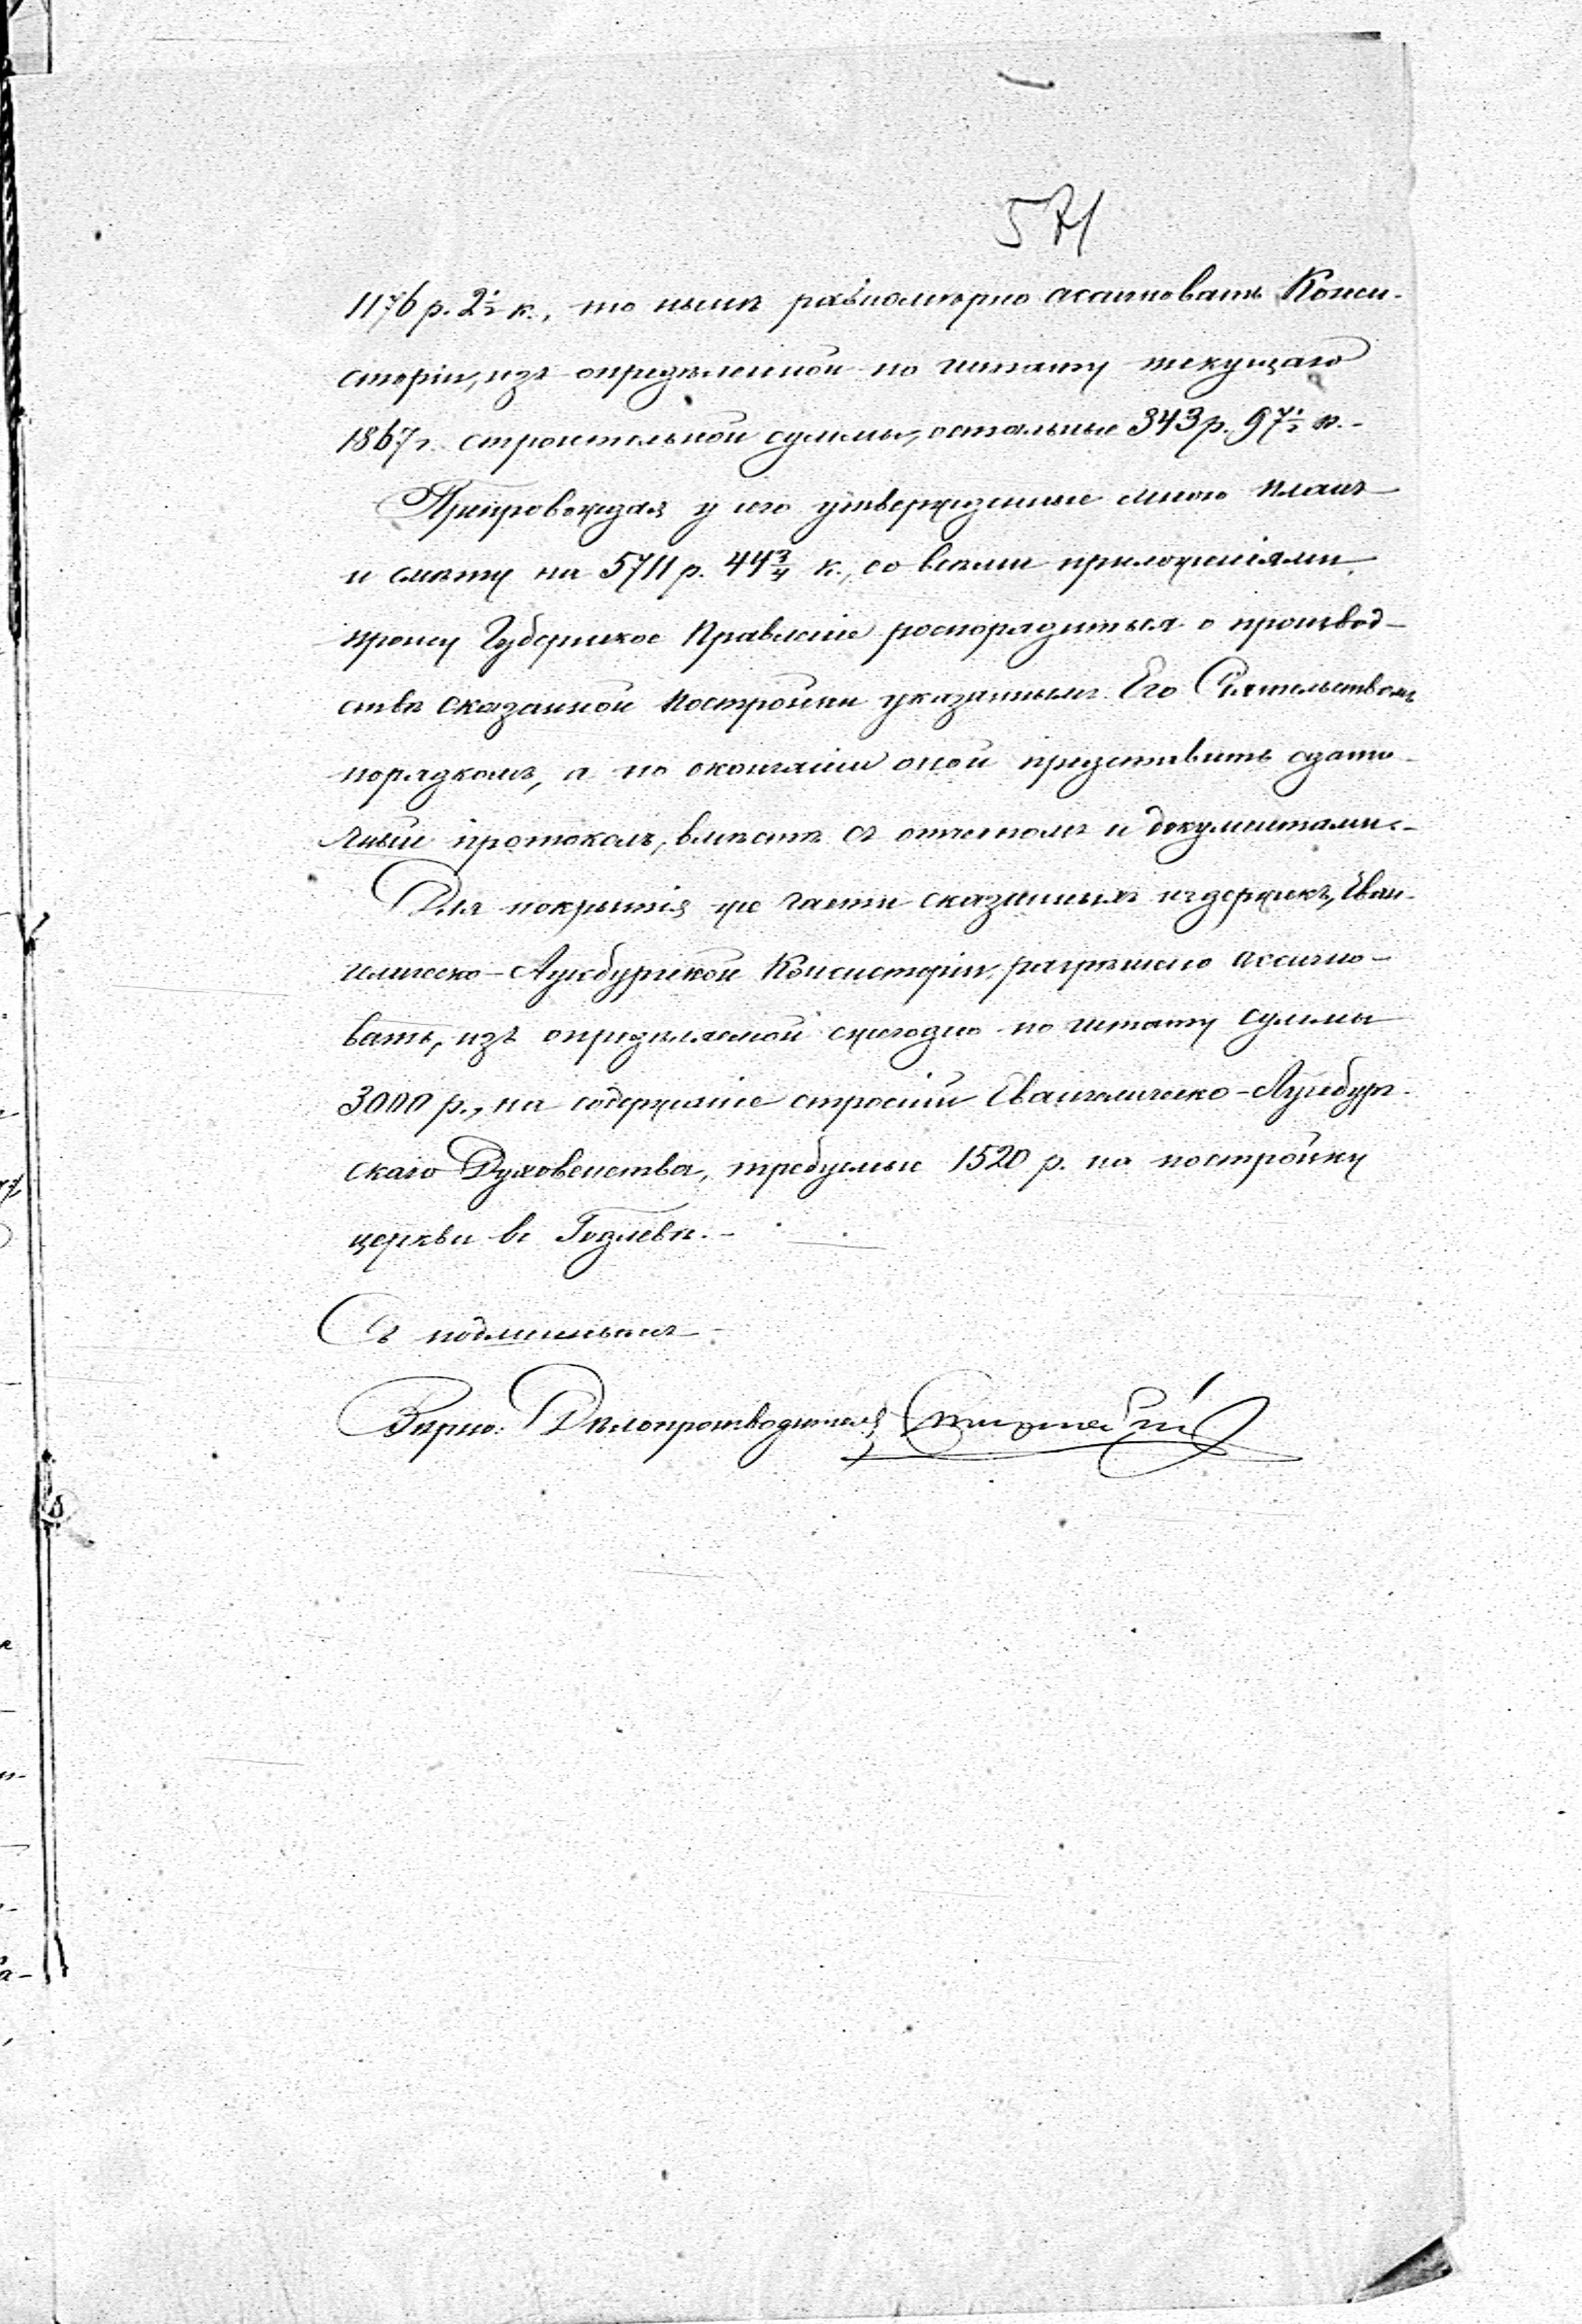 571
1176 р. 2½ к., то нынѣ равномѣрно асигновать Конси-
сторіи, изъ опредѣленной по штату текущаго
1867 г. строительной суммы, остальные 343 р. 97½ к. -
Препровождая у сего утвержденные мною планъ
и смѣту на 5711 р. 44¾ к., со всѣми приложеніями,
прошу Губернское Правленіе роспорядиться о производ-
ствѣ сказанной постройки указаннымъ Его Сіятельствомъ
порядкомъ, а по окончаніи оной представить сдато-
чный протоколъ, вмѣстѣ съ отчетомъ и документами. -
Для покрытія же части сказанныхъ издержекъ, Еван-
гелическо-Аугсбургской Консисторіи, разрѣшено асигно-
вать, изъ опредѣляемой ежегодно по штату суммы
3000 р., на содержаніе строеній Евангелическо-Аугсбург-
скаго Духовенства, требуемые 1520 р. на постройку
церкви въ Годлевѣ. -
Съ подлиннымъ
Вѣрно: Дѣлопроизводитель